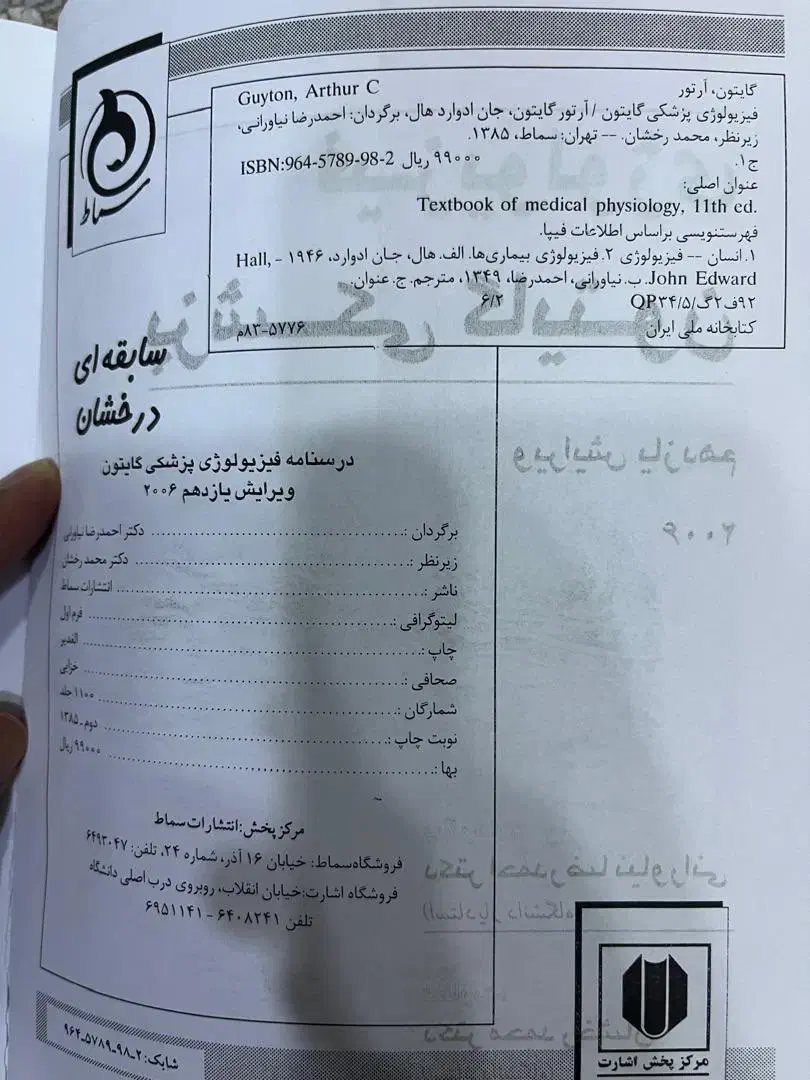 گایتون، آرتور Guyton, Arthur C
فیزیولوژی پزشکی گایتون / آرتور گایتون، جان ادوارد هال، برگردان: احمدرضا نیاورانی،
زیرنظر، محمد رخشان. -- تهران: سماط، ۱۳۸۵.
ج۱. ۹۹۰۰۰ ریال ISBN:964-5789-98-2
عنوان اصلی:
Textbook of medical physiology, 11th ed.
فهرستنویسی براساس اطلاعات فیپا.
۱. انسان -- فیزیولوژی ۲. فیزیولوژی بیماری‌ها. الف. هال، جان ادوارد، ۱۹۴۶ - Hall,
John Edward. ب. نیاورانی، احمدرضا، ۱۳۴۹، مترجم. ج. عنوان.
۹۲ف۲گ/۵/QP۳۴ ۶/۲
کتابخانه ملی ایران ۸۳-۵۷۷۶م
سماط
سابقه ای
درخشان
درسنامه فیزیولوژی پزشکی گایتون
ویرایش یازدهم ۲۰۰۶
برگردان :........ دکتر احمدرضا نیاورانی
زیرنظر :........ دکتر محمد رخشان
ناشر :........ انتشارات سماط
لیتوگرافی :........ فرم اول
چاپ :........ الغدیر
صحافی :........ خزایی
شمارگان :........ ۱۱۰۰ جلد
نوبت چاپ :........ دوم ـ ۱۳۸۵
بها :........ ۹۹۰۰۰ ریال
مرکز پخش: انتشارات سماط
فروشگاه سماط: خیابان ۱۶ آذر، شماره ۲۴، تلفن: ۶۴۹۳۰۴۷
فروشگاه اشارت: خیابان انقلاب، روبروی درب اصلی دانشگاه
تلفن ۶۴۰۸۲۴۱ - ۶۹۵۱۱۴۱
شابک: ۲-۹۸-۵۷۸۹-۹۶۴
مرکز پخش اشارت